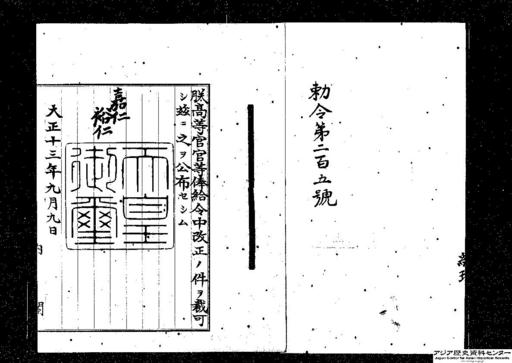 勅令第二百五號
朕高等官官等俸給令中改正ノ件ヲ裁可
シ玆ニ之ヲ公布セシム
嘉仁
裕仁
天皇
御璽
大正十三年九月九日
内
閣
アジア歴史資料センター
Japan Center for Asian Historical Records